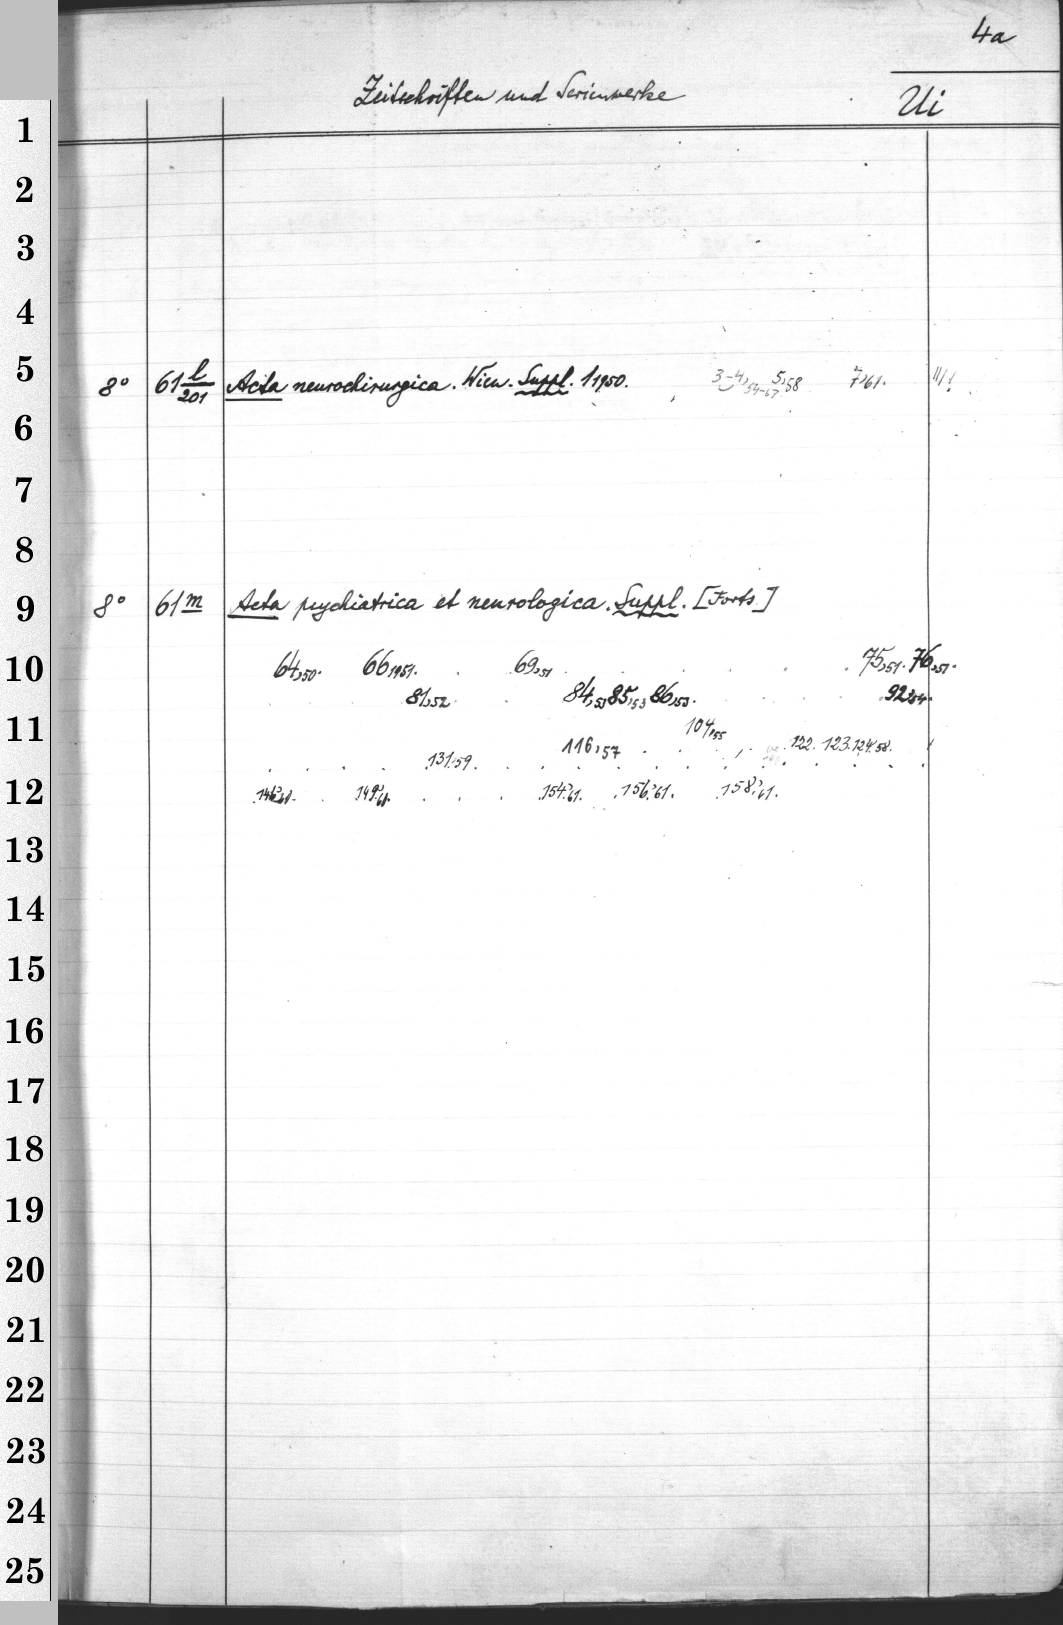 4a
Zeitschriften und Serienwerke Ui
1
2
3
4
5
8° 61 l/201 Acta neurochirurgica. Wien. Suppl. 1,1950. 3-4,54-57 5,58 7,61.
6
7
8
9
8° 61 m Acta psychiatrica et neurologica. Suppl. [Forts.]
10
64,50. 66,1951. 69,51 75,51. 76,51.
81,52 84,53 85,53 86,53. 92,54.
11
104,55
116,57 122. 123. 124,58.
131,59.
12
149,61. 154,61. 156,61. 158,61.
13
14
15
16
17
18
19
20
21
22
23
24
25